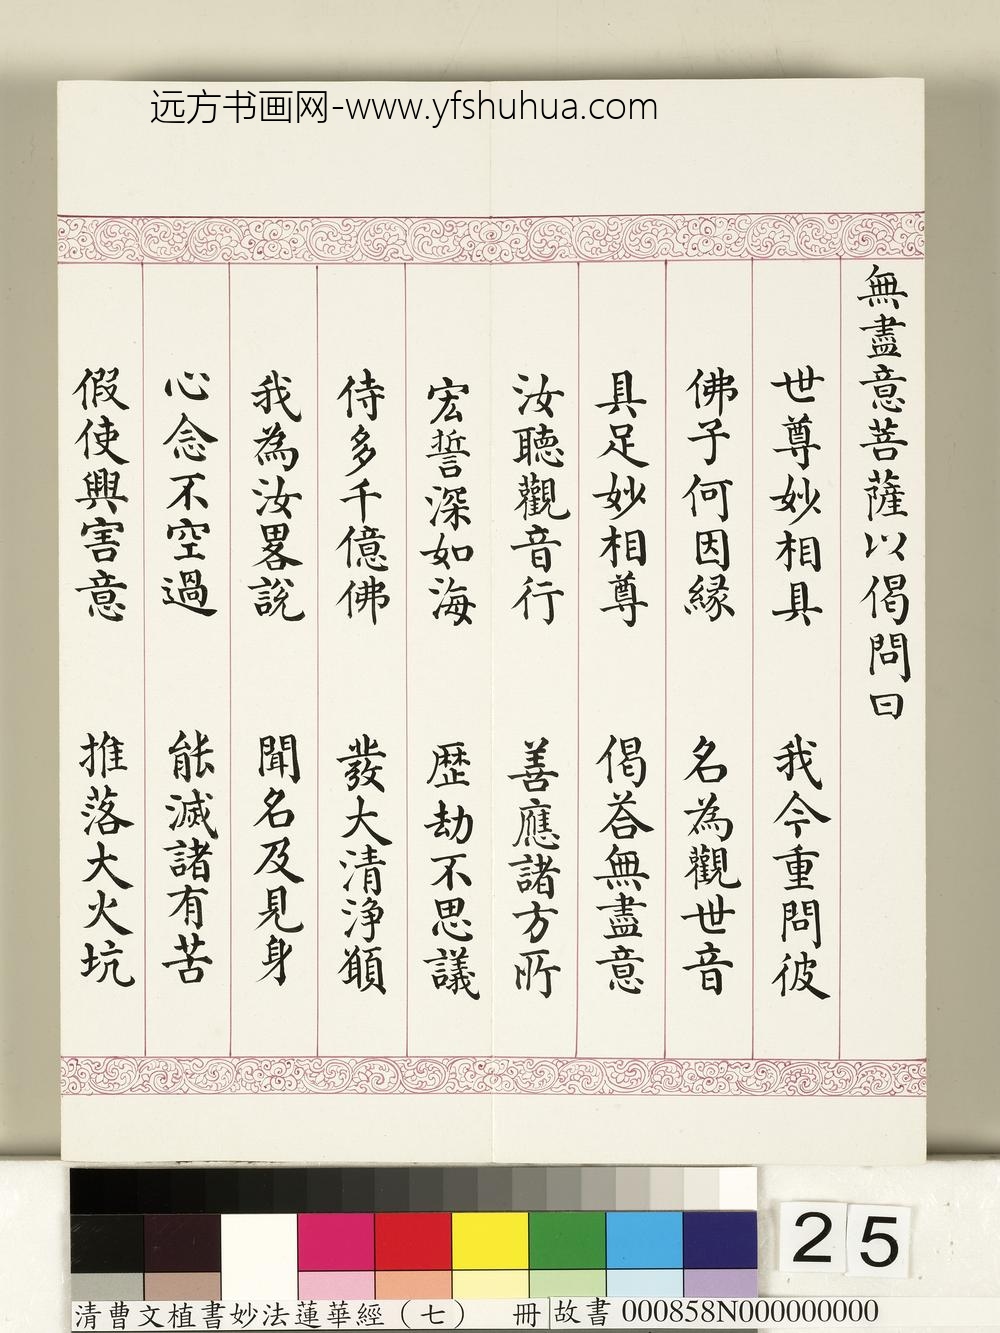 远方书画网-www.yfshuhua.com
無盡意菩薩以偈問曰
世尊妙相具 我今重問彼
佛子何因緣 名為觀世音
具足妙相尊 偈荅無盡意
汝聽觀音行 善應諸方所
宏誓深如海 歷劫不思議
侍多千億佛 發大清淨願
我為汝畧說 聞名及見身
心念不空過 能滅諸有苦
假使興害意 推落大火坑
25
清曹文植書妙法蓮華經（七） 冊 故書 000858N000000000